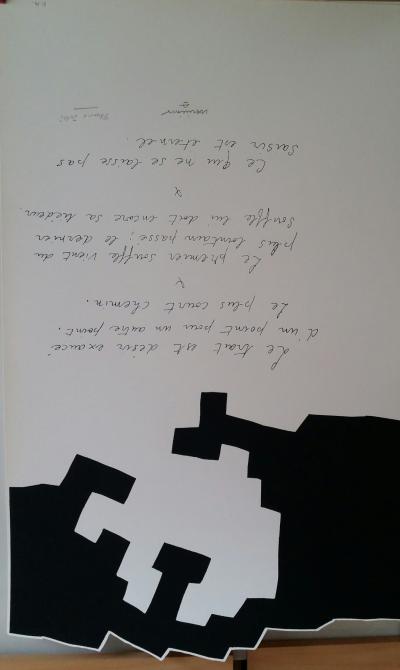 Le trait est désir exaucé
d'un point pour un autre point.
Le plus court chemin.
x
Le premier souffle vient du
plus lointain passé ; le dernier
souffle lui doit encore sa tiédeur.
x
Ce qui ne se laisse pas
saisir est éternel.